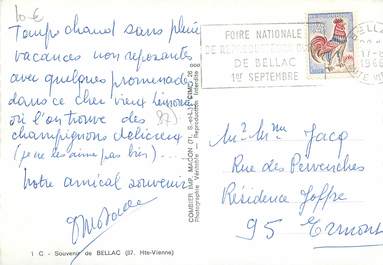 10 €
Temps chaud sans pluie
vacances non reposantes
avec quelques promenades
dans ce cher vieux Limousin
où l'on trouve des (87)
champignons délicieux
(je ne les aime pas bien) ...
Notre amical souvenir
1 C - Souvenir de BELLAC (87. Hte-Vienne)
COMBIER IMP. MACON (71. S.-et-L.) "CIM"
Photographie Véritable - Reproduction Interdite
FOIRE NATIONALE
DE BELLAC
1er SEPTEMBRE
BELLAC
1966
Mr Mme Jacq
Rue des Pervenches
Résidence Joffre
95 Ermont